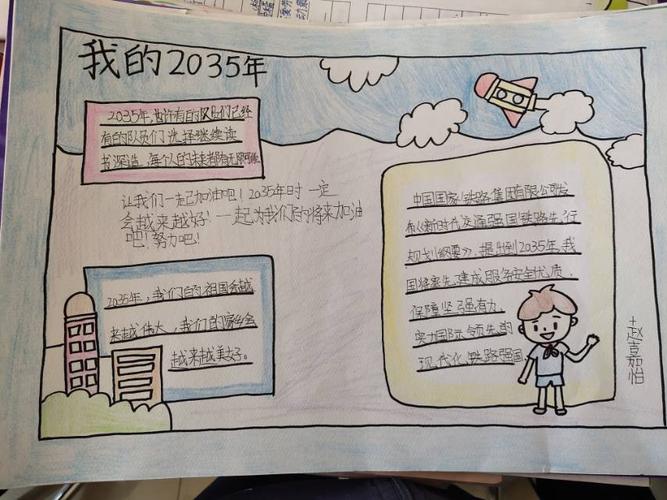 我的2035年
2035年,也许有的队员们已经
有的队员们选择继续读
书深造,每个人的未来都有无限可能
让我们一起加油吧!2035年时一定
会越来越好!一起为我们的将来加油
吧!努力吧!
中国国家铁路集团有限公司发
布《新时代交通强国铁路先行
规划纲要》,提出到2035年,我
国将率先建成服务安全优质,
保障坚强有力,
实力国际领先的
现代化铁路强国
2035年,我们的祖国会越
来越伟大,我们的家乡会
越来越美好。
赵嘉怡